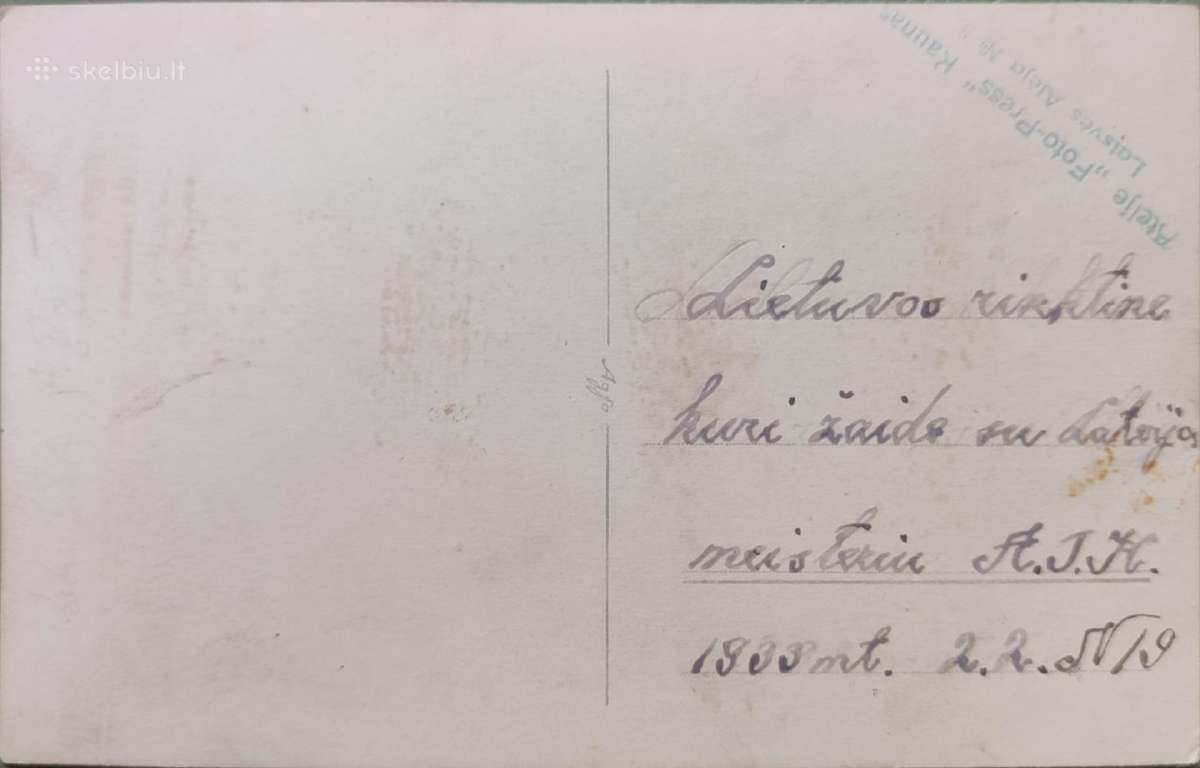 skelbiu.lt
Atelje „Foto-Press" Kaunas
Laisvės Alėja №
Lietuvos rinktine
kuri žaide su Latvija
meisteriu A.S.K.
1933 mt. 2.2. N19